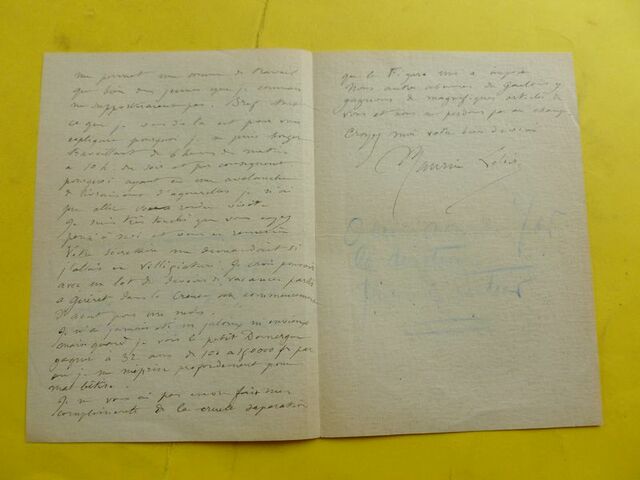 me permet une somme de travail
que bien des jeunes que je connais
ne supporteraient pas. Bref tout
ce que je vous dis là est pour vous
expliquer pourquoi je
travaillant de 6 heures du matin
à 10 h. du soir et par conséquent
pourquoi ayant eu une avalanche
de livraisons d'aquarelles je n'ai
pu aller vous
Je suis très touché que vous ayez
pensé à moi et vous en remercie
Votre secrétaire me demandait si
j'allais en villégiature. Je crois pouvoir
avec un lot de devoirs de vacances partir
à Guéret dans la Creuse au commencement
d'août pour un mois.
Je n'ai jamais été ni jaloux ni envieux
mais quand je vois le petit Domergue
gagner à 32 ans de 100 à 150000 fr par
an je me méprise profondément pour
ma bêtise.
Je ne vous ai pas encore fait mes
compliments de la cruelle séparation
que le Figaro
Nous autres abonnés du Gaulois y
gagnons de magnifiques articles de
vous et nous ne perdons pas au change
Croyez moi votre bien dévoué
Maurice